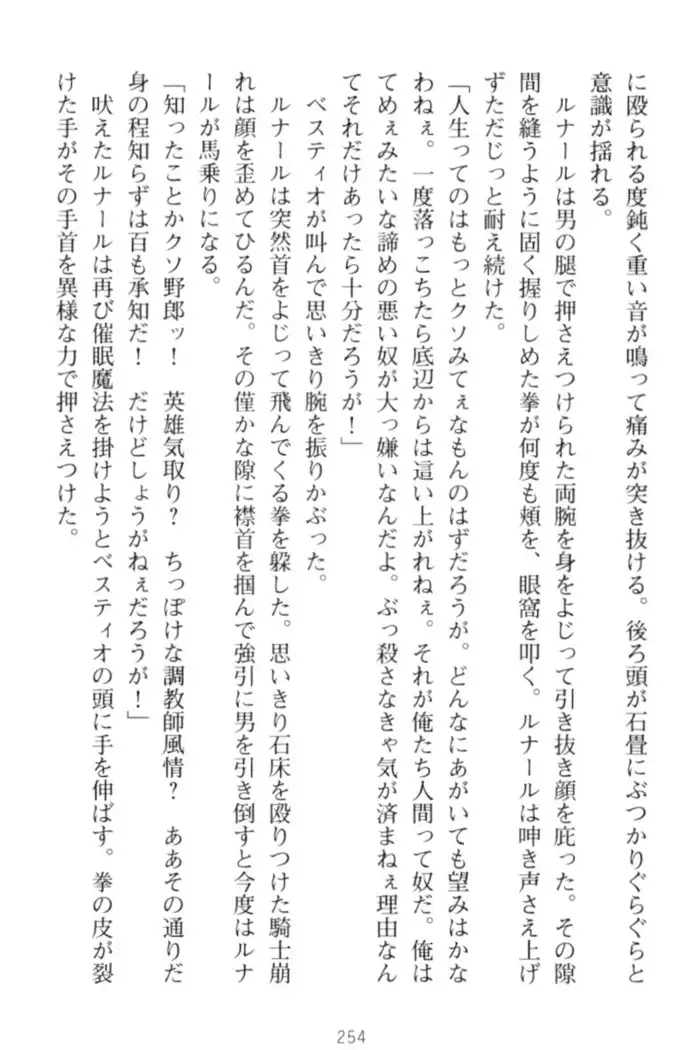 に殴られる度鈍く重い音が鳴って痛みが突き抜ける。後ろ頭が石畳にぶつかりぐらぐらと
意識が揺れる。
　ルナールは男の腿で押さえつけられた両腕を身をよじって引き抜き顔を庇った。その隙
間を縫うように固く握りしめた拳が何度も頬を、眼窩を叩く。ルナールは呻き声さえ上げ
ずただじっと耐え続けた。
「人生ってのはもっとクソみてぇなもんのはずだろうが。どんなにあがいても望みはかな
わねぇ。一度落っこちたら底辺からは這い上がれねぇ。それが俺たち人間って奴だ。俺は
てめぇみたいな諦めの悪い奴が大っ嫌いなんだよ。ぶっ殺さなきゃ気が済まねぇ理由なん
てそれだけあったら十分だろうが！」
　ベスティオが叫んで思いきり腕を振りかぶった。
　ルナールは突然首をよじって飛んでくる拳を躱した。思いきり石床を殴りつけた騎士崩
れは顔を歪めてひるんだ。その僅かな隙に襟首を掴んで強引に男を引き倒すと今度はルナ
ールが馬乗りになる。
「知ったことかクソ野郎ッ！　英雄気取り？　ちっぽけな調教師風情？　ああその通りだ
身の程知らずは百も承知だ！　だけどしょうがねぇだろうが！」
　吠えたルナールは再び催眠魔法を掛けようとベスティオの頭に手を伸ばす。拳の皮が裂
けた手がその手首を異様な力で押さえつけた。
254